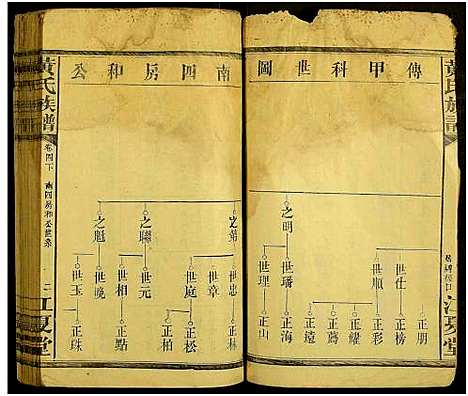 傳甲科世圖
黃氏族譜
江夏堂
之明
世仕
世順
世璠
世理
正朋
正榜
正彩
正耀
正蔭
正遠
正海
正山
南四房和公
之聯
之魁
世忠
世章
世庭
世元
世相
世晚
世玉
正林
正松
正點
正珠
黃氏族譜
卷四下
南四房和公世系
江夏堂